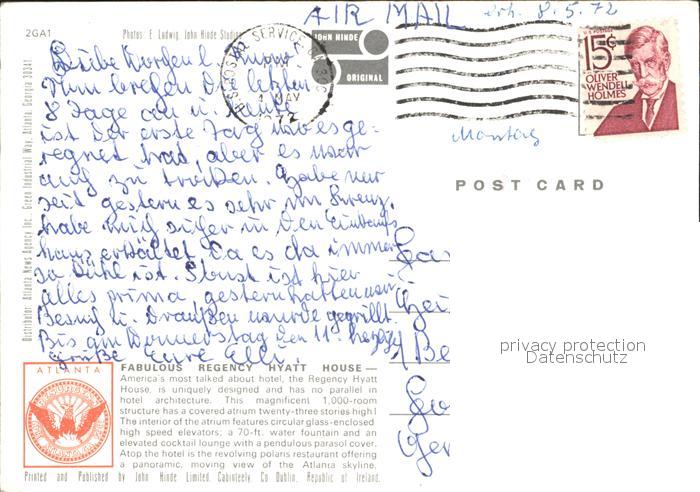 AIR MAIL erh. 8.5.72
2GA1 Photos: E. Ludwig, John Hinde Studios
JOHN HINDE
ORIGINAL
U.S. POSTAL SERVICE
MAY
1972
U.S. POSTAGE
15¢
OLIVER
WENDELL
HOLMES
Montag
POST CARD
Nun brechen die letzten
8 Tage an u. heute
ist der erste Tag wo es ge-
regnet hat, aber es war
auch zu trocken. Habe nur
seit gestern es sehr im Kreuz,
habe mich sicher in den Einkaufs
haus erkältet da es da immer
so kühl ist. Sonst ist hier
alles prima gestern hatten wir
Besuch u. Draußen wurde gegrillt.
Bis am Donnerstag den 11. herzlg
Grüße Eure Elli.
Distributor: Atlanta News Agency Inc. Green Industrial Way, Atlanta, Georgia 30341
privacy protection
Datenschutz
ATLANTA
FABULOUS REGENCY HYATT HOUSE —
America's most talked about hotel, the Regency Hyatt
House, is uniquely designed and has no parallel in
hotel architecture. This magnificent 1,000-room
structure has a covered atrium twenty-three stories high!
The interior of the atrium features circular glass-enclosed
high speed elevators; a 70-ft. water fountain and an
elevated cocktail lounge with a pendulous parasol cover.
Atop the hotel is the revolving polaris restaurant offering
a panoramic, moving view of the Atlanta skyline.
Printed and Published by John Hinde Limited, Cabinteely, Co Dublin, Republic of Ireland.